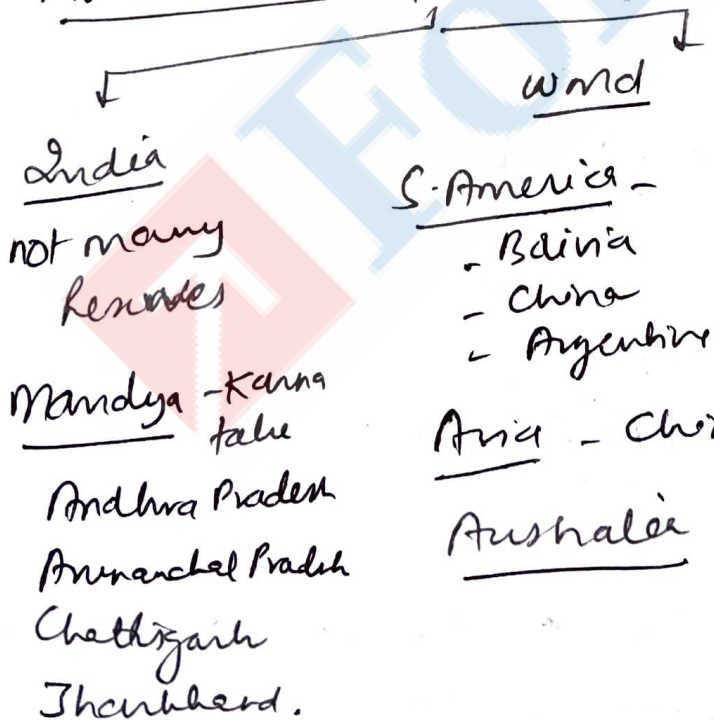 India
not many
Reserves
Mandya - Karna
taka
Andhra Pradesh
Arunanchal Pradesh
Chattisgarh
Jharkhand.
World
S. America -
- Bolivia
- China
- Argentina
Asia - Chi
Australia